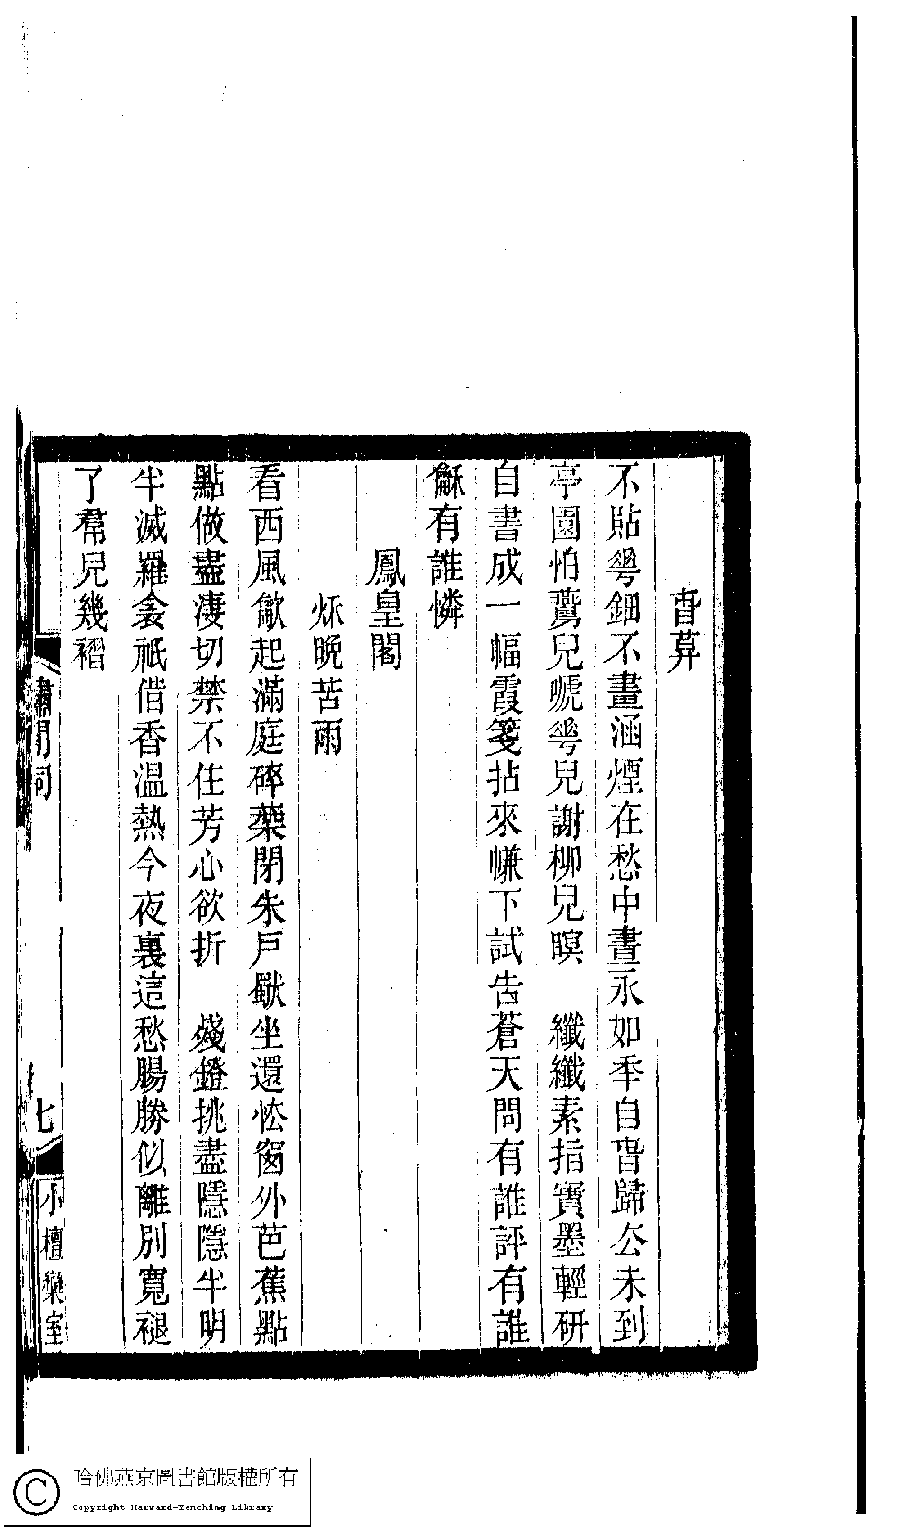 旾莫
不貼𠌶鈿不畫涵煙在愁中晝永如秊自旾歸厺未到
亭園怕鷰兒嗁𠌶兒謝桺兒瞑　纖纖素指寶墨輕研
自書成一幅霞箋拈來㡘下試告蒼天問有誰評有誰
龢有誰憐
鳳皇閣
秌晚苦雨
看西風歙起滿庭碎葉閉朱戶獃坐還忪窗外芭蕉點
點做盡淒切禁不住芳心欲折　殘鐙挑盡隱隱半明
半滅羅衾祇偕香溫熱今夜裏這愁腸勝似離別寬褪
了帬兒幾褶
詞
七
小檀欒室
哈佛燕京圖書館版權所有
Copyright Harvard-Yenching Library